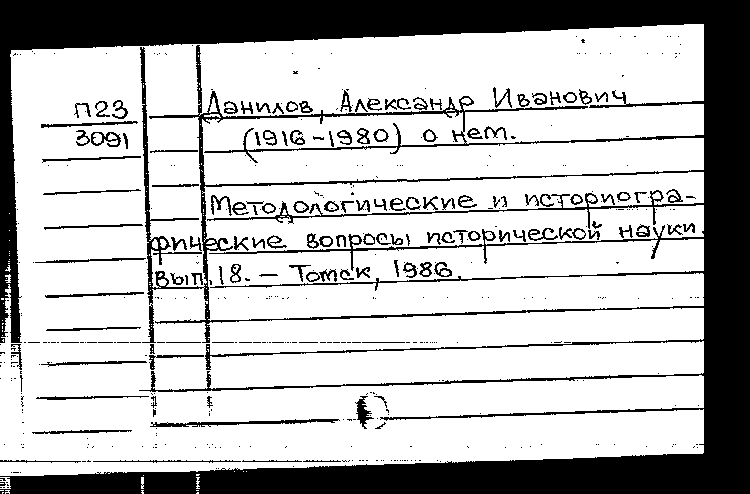 П23
3091
Данилов, Александр Иванович
(1916-1980) о нем.
Методологические и историогра-
фические вопросы исторической науки.
Вып. 18. - Томск, 1986.